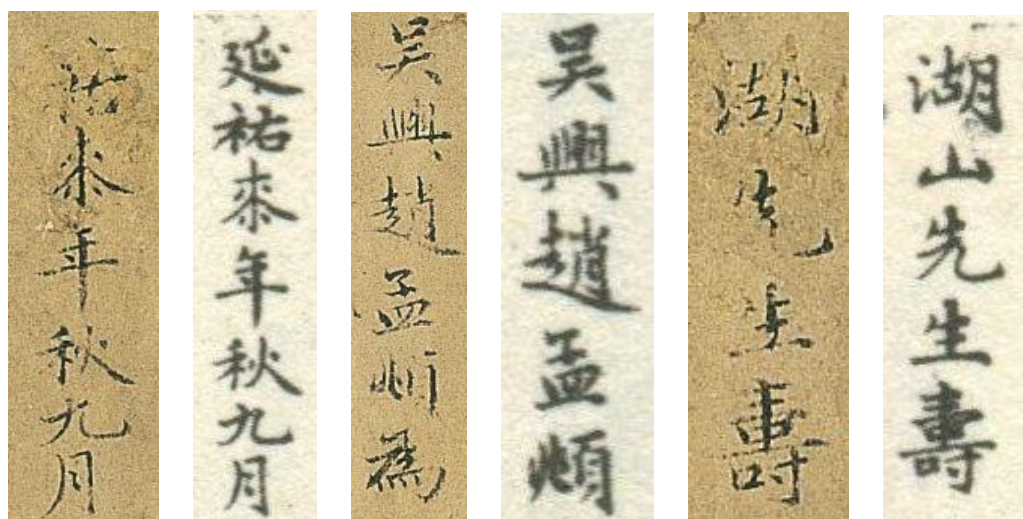 祐桼年秋九月
延祐桼年秋九月
吴興趙孟頫為
吴興趙孟頫
湖先生壽
湖山先生壽